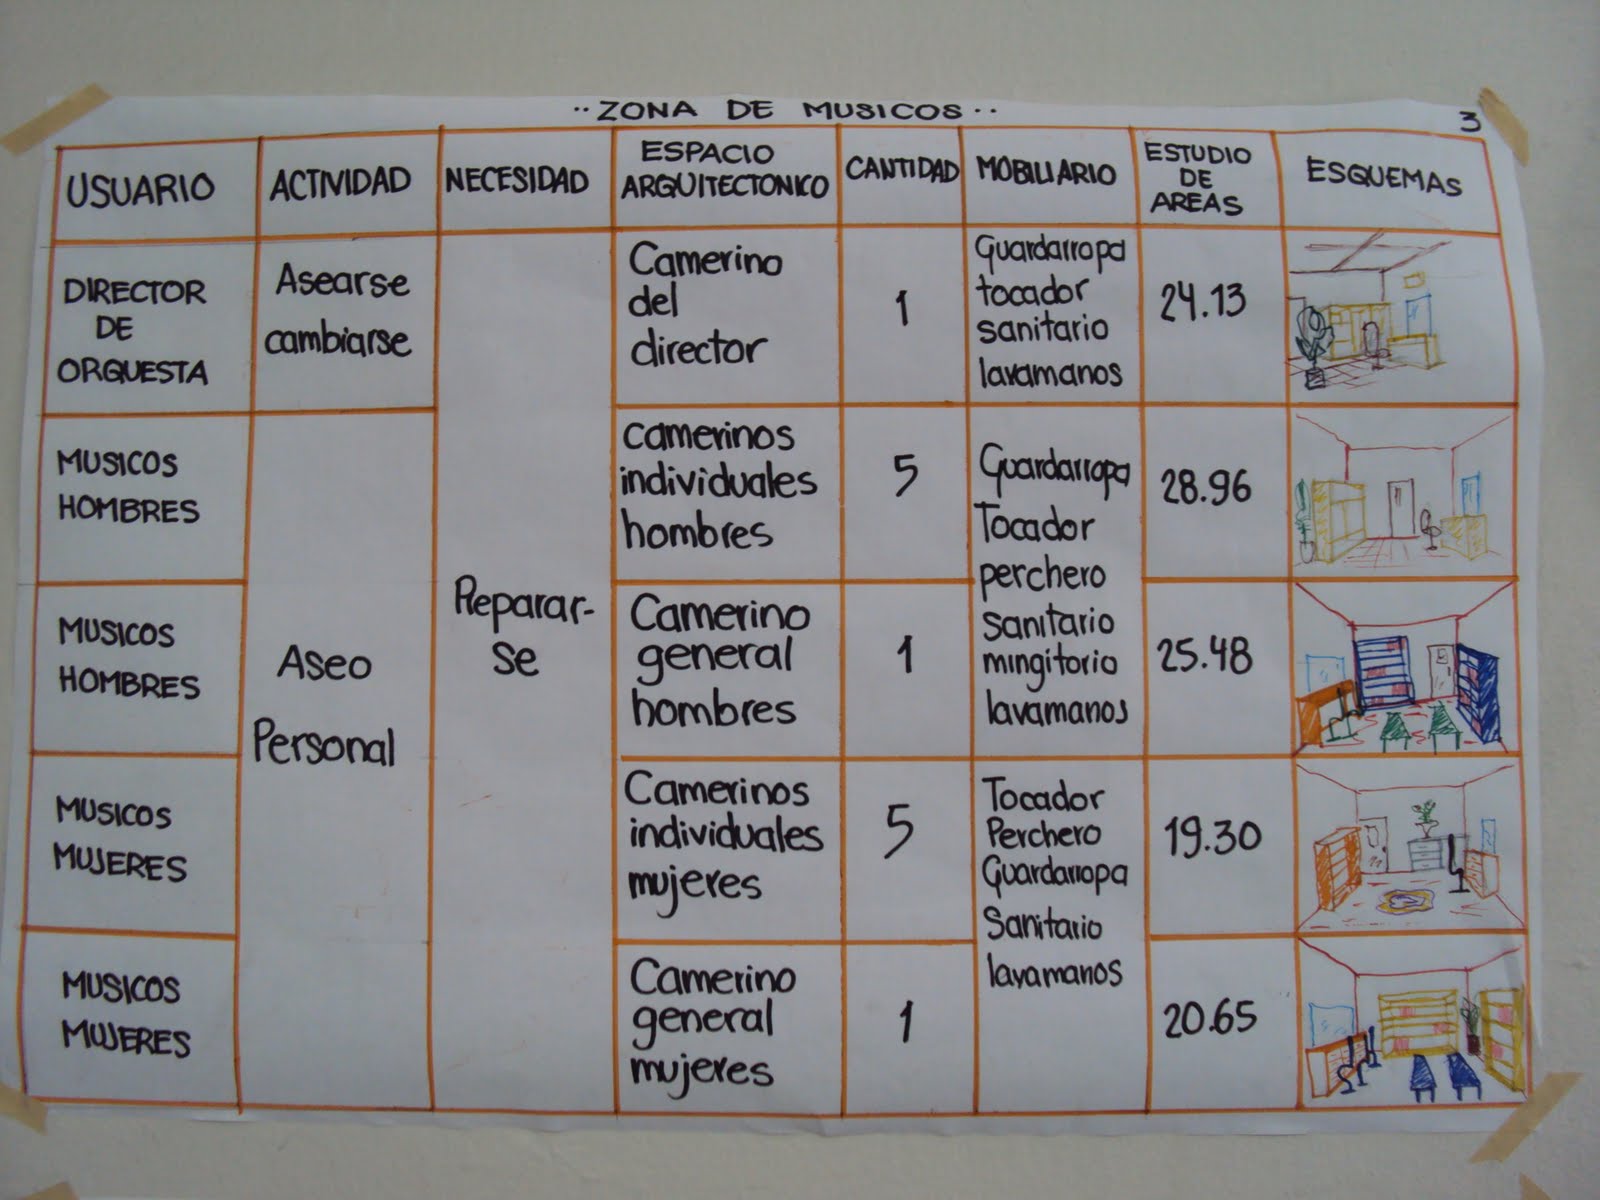 ..ZONA DE MUSICOS..
3
USUARIO
ACTIVIDAD
NECESIDAD
ESPACIO
ARQUITECTONICO
CANTIDAD
MOBILIARIO
ESTUDIO
DE
AREAS
ESQUEMAS
DIRECTOR
DE
ORQUESTA
Asearse
cambiarse
Camerino
del
director
1
Guardarropa
tocador
sanitario
lavamanos
24.13
MUSICOS
HOMBRES
camerinos
individuales
hombres
5
Guardarropa
Tocador
perchero
sanitario
mingitorio
lavamanos
28.96
MUSICOS
HOMBRES
Aseo
Personal
Reparar-
se
Camerino
general
hombres
1
25.48
MUSICOS
MUJERES
Camerinos
individuales
mujeres
5
Tocador
Perchero
Guardarropa
Sanitario
lavamanos
19.30
MUSICOS
MUJERES
Camerino
general
mujeres
1
20.65